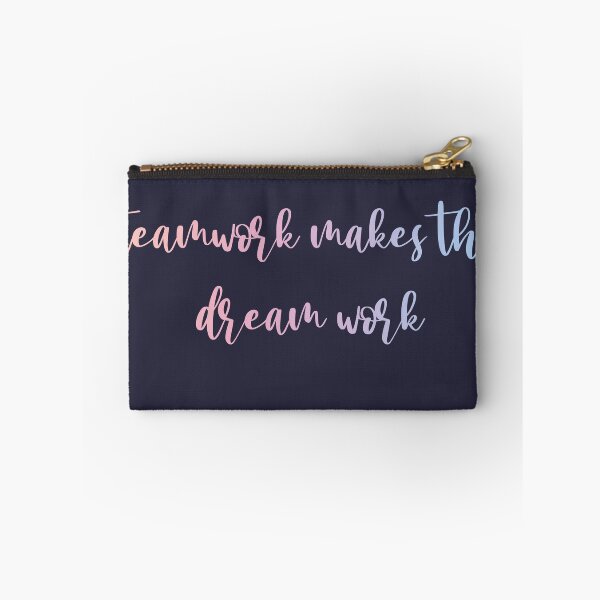 teamwork makes the
dream work